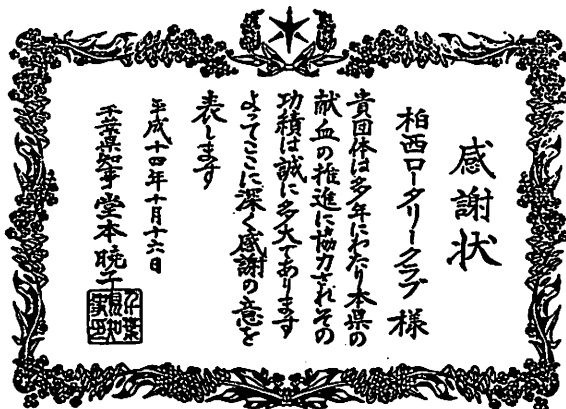 感謝状
柏西ロータリークラブ 様
貴団体は多年にわたり本県の
献血の推進に協力されその
功積は誠に多大であります
よってここに深く感謝の意を
表します
平成十四年十月十六日
千葉県知事 堂本暁子
千葉
県知
事印